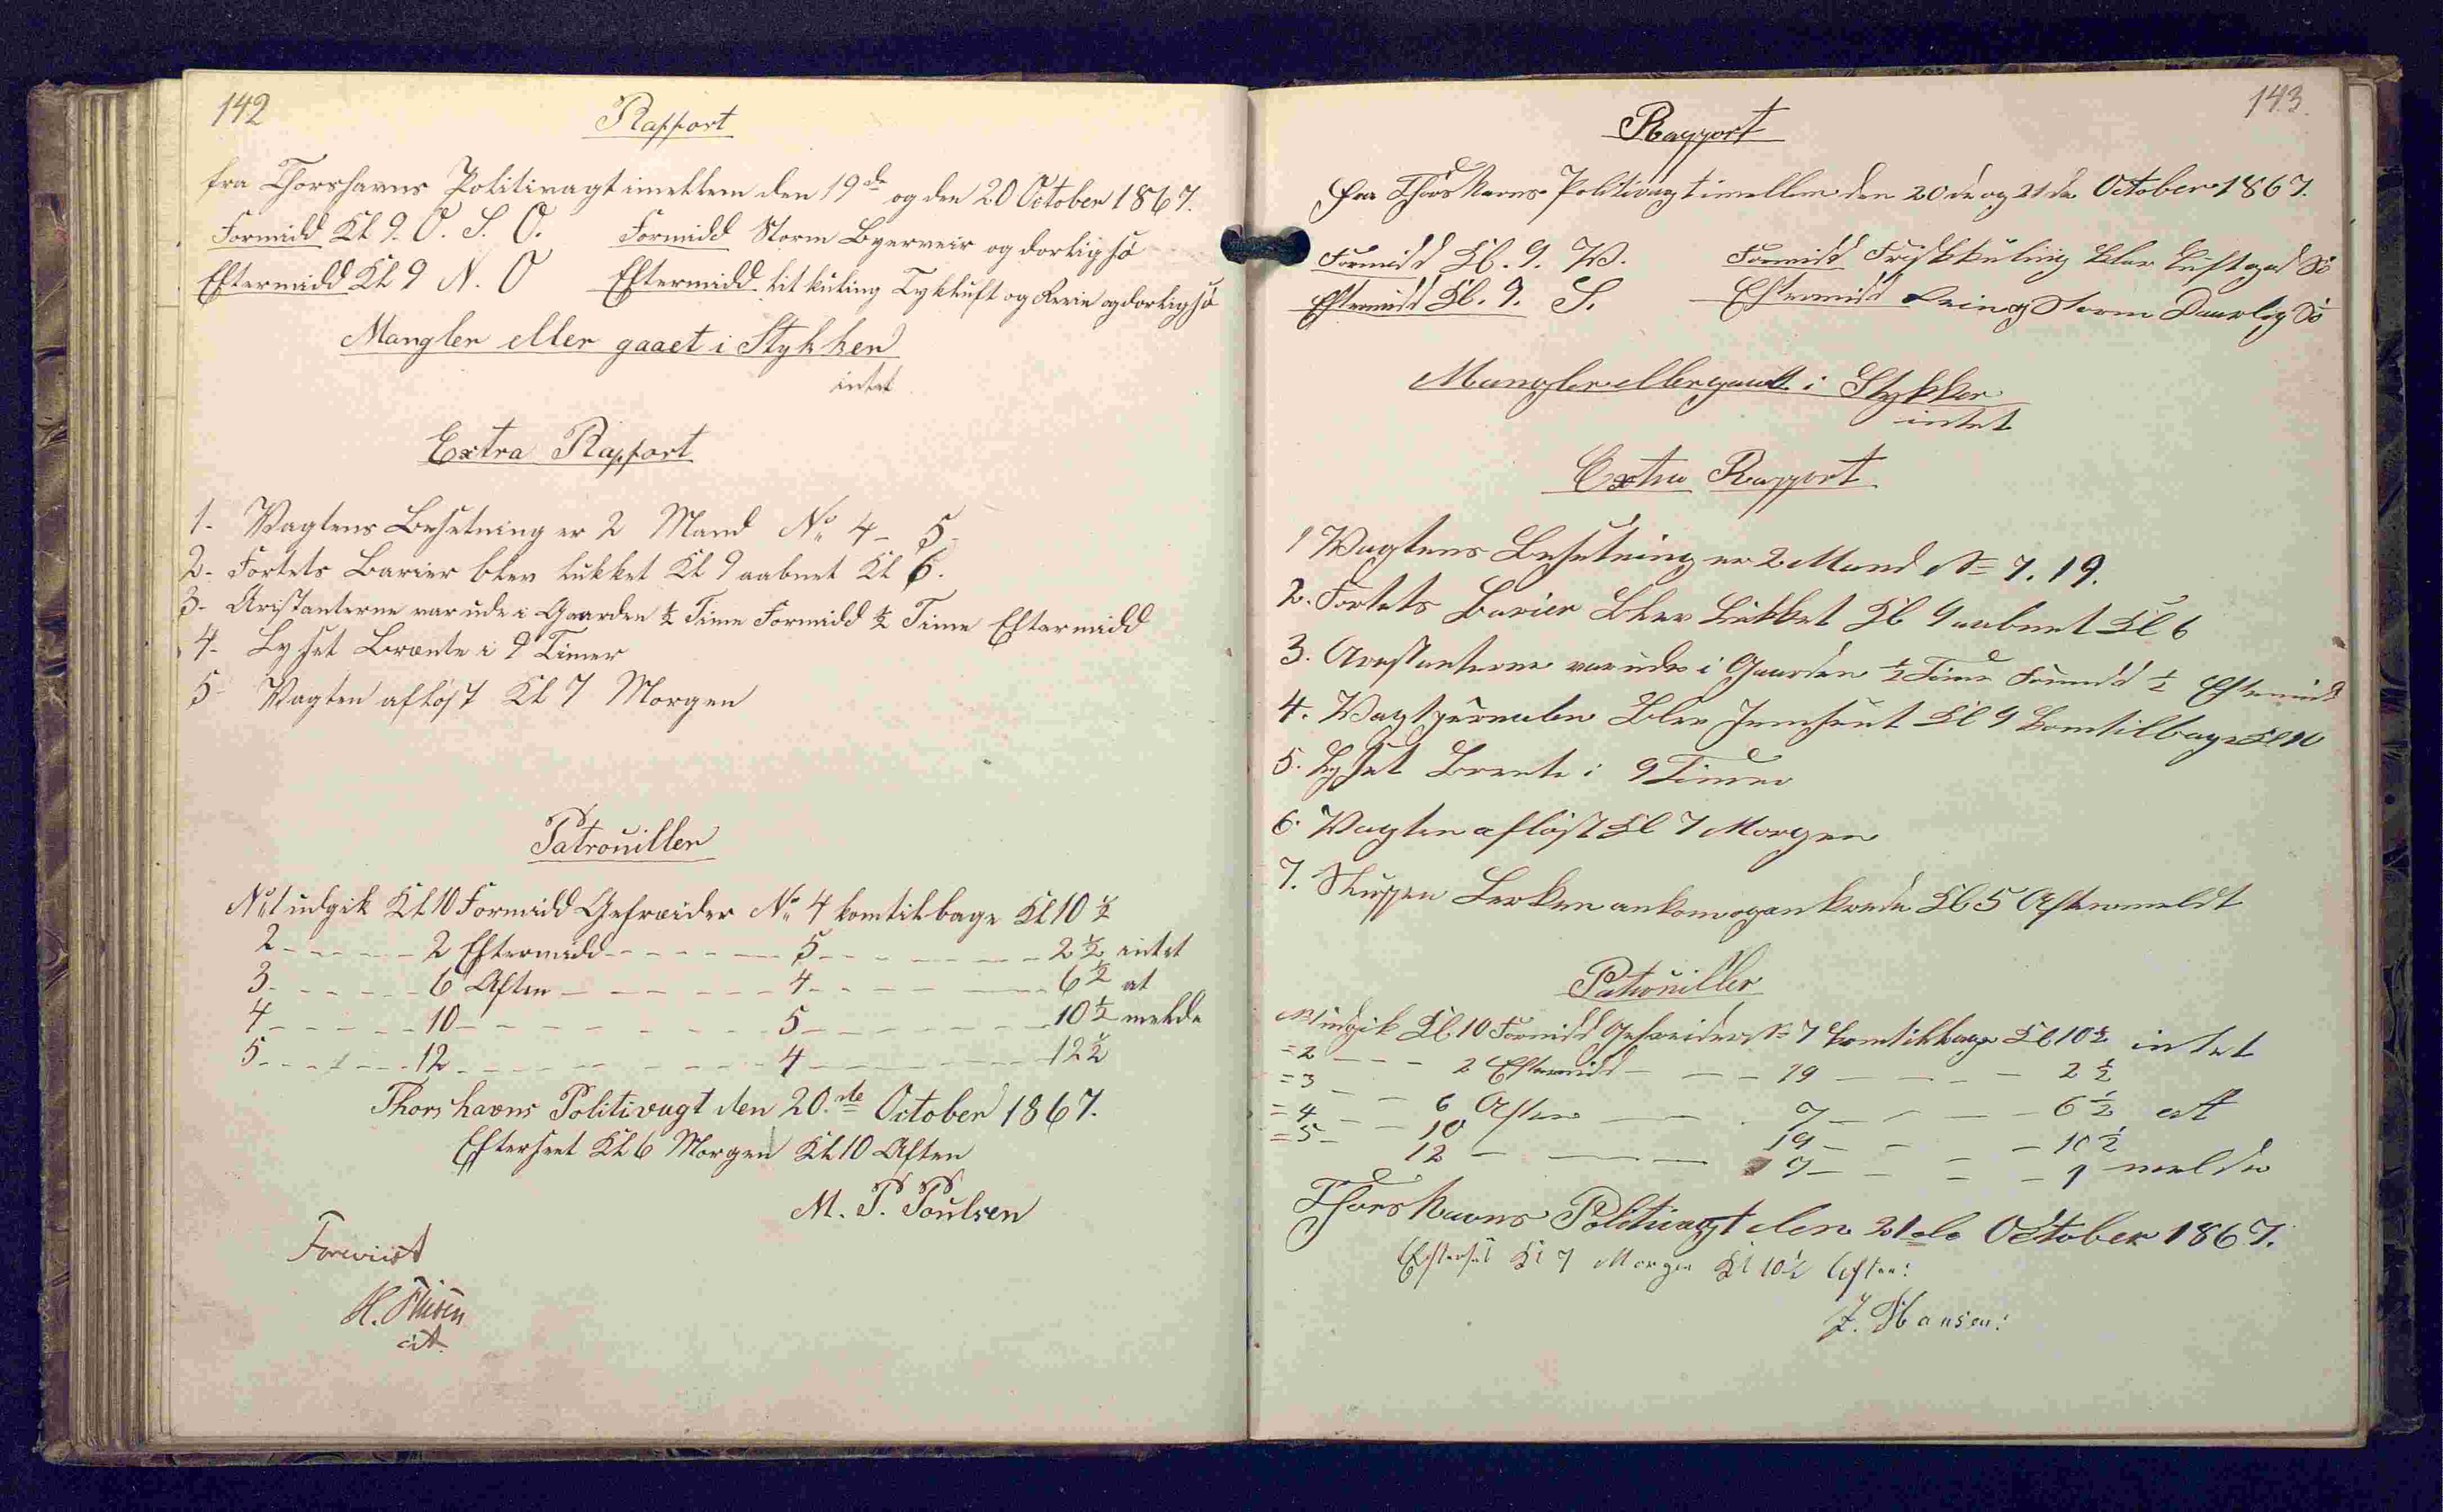 142
Rapport
fra Thorshavns Politivagt imellem den 19de og den 20 October 1867.
Formidd Kl 9. O. S. O. Formidd Storm Byerveir og dorlig sø
Eftermidd Kl 9 N. O Eftermidd lit kuling Tykluft og Rein og dorlig sø
Mangler eller gaaet i Stykker
intet
Extra Rapport
1- Vagtens Besetning er 2 Mand No 4- 5-
2- Fortets Barier blev lukket Kl 9 aabnet Kl 6.
3- Aristanterne var ude i Gaarden ½ Time Formidd ½ Time Eftermidd
4- Lyset Brænte i 9 Timer
5- Vagten afløst Kl 7 Morgen
Patrouiller
No 1 udgik Kl 10 Formidd Gefreider No 4 kom tilbage Kl 10 ½
2 - - - - - 2 Eftermidd - - - - - 5 - - - - - 2 ½ intet
3 - - - - - 6 Aften - - - - - 4 - - - - - 6 ½ at
4 - - - - - 10 - - - - - 5 - - - - - 10 ½ melde
5 - - - - - 12 - - - - - 4 - - - - - 12 ½
Thorshavns Politivagt den 20.de October 1867.
Efterseet Kl 6 Morgen Kl 10 Aften
M. P. Poulsen
Foreviist
H.
cst.
143.
Rapport
fra Thorshavns Politivagt imellem den 20de og 21de October 1867.
Formidd Kl. 9. W. Formidd Friskkuling klar Luft og god Sø
Eftermidd Kl. 9. S. Eftermidd Rein og Storm Daarlig Sø
Mangler eller gaaet i Stykker
intet
Extra Rapport
1 Wagtens Besetning er 2 Mand No 7. 19.
2. Fortets Barier Blev Lukket Kl 9 aabnet Kl 6
3. Arestanterne var ude i Gaarden ½ Time Formidd ½ Eftermidd
4. Wagtjurnalen Blev Jemsent Kl 9 kom tilbage Kl 10
5. Lyset Brente i 9 Timer
6. Wagten afløst Kl 7 Morgen
7. Sluppen Lerken ankom og ankrede Kl 5 Aften meldt
Patrouiller
No 1 udgik Kl. 10 Formidd Gefreider No 7 kom tilbage Kl 10 ½ intet
= 2 - - - 2 Eftermidd - - - 19 - - - 2 ½
= 3 - - 6 Aften - - 7 - - - 6 ½ at
= 4 - - 10 - - 19 - - - 10 ½
= 5 - 12 - - - 7 - - - 1 melde
Thorshavns Politivagt den 21de October 1867.
Efterset Kl 7 Morgen Kl 10½ Aften:
J. Hansen: